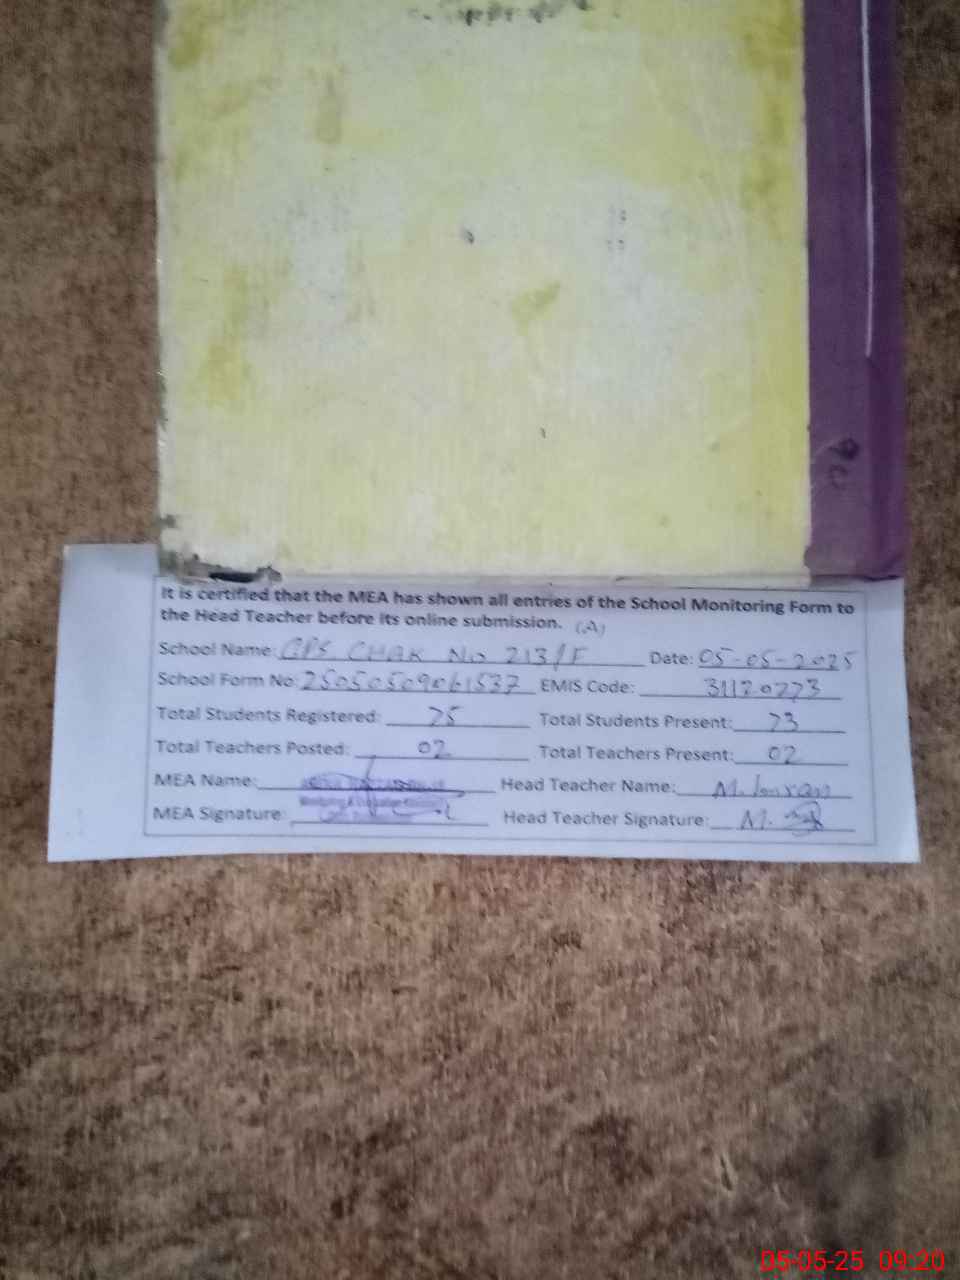 It is certified that the MEA has shown all entries of the School Monitoring Form to
the Head Teacher before its online submission. (A)
School Name: GPS CHAK No 213/F Date: 05-05-2025
School Form No: 25050509061537 EMIS Code: 31120273
Total Students Registered: 75 Total Students Present: 73
Total Teachers Posted: 02 Total Teachers Present: 02
MEA Name: Head Teacher Name: M. Imran
MEA Signature: Head Teacher Signature: M.
05-05-25 09:20